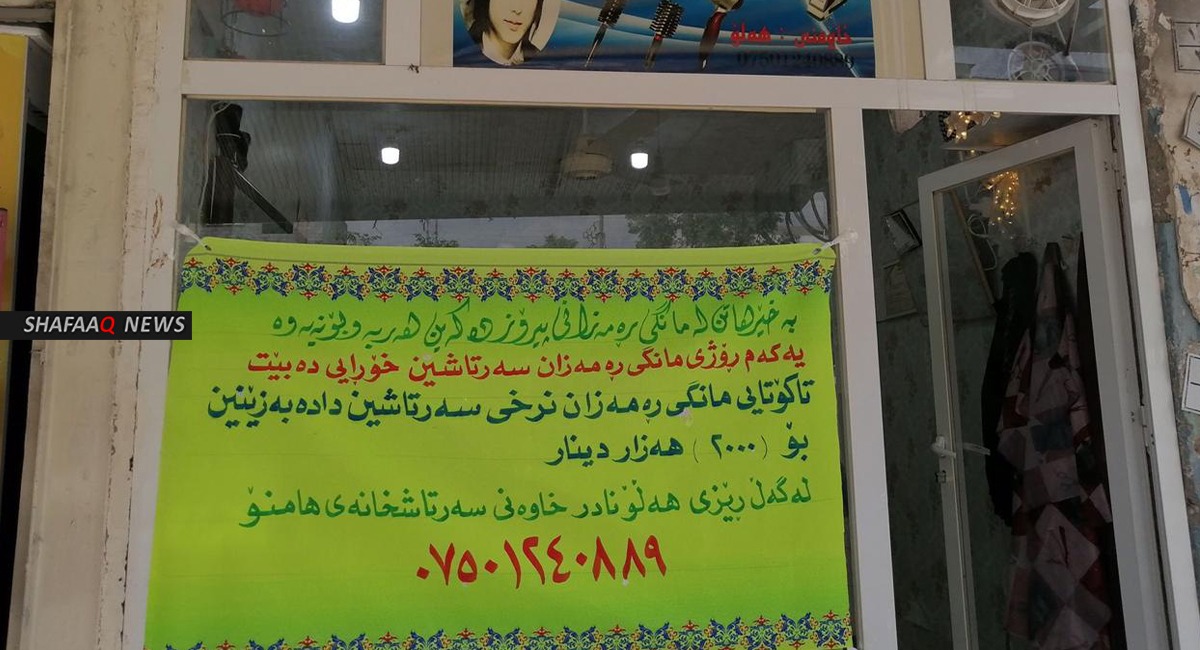 خاوەنی : هەڵۆ
07501240889
SHAFAAQ NEWS
بەخێرهاتن لە مانگی ڕەمەزانی پیرۆز دەکەین لەبەر بۆنەیەوە
یەکەم ڕۆژی مانگی ڕەمەزان سەرتاشین خۆڕایی دەبێت
تاکۆتایی مانگی ڕەمەزان نرخی سەرتاشین دادەبەزێنین
بۆ ( ٢٠٠٠ ) هەزار دینار
لەگەڵ ڕێزی هەڵۆ نادر خاوەنی سەرتاشخانەی هامنۆ
٠٧٥٠١٢٤٠٨٨٩